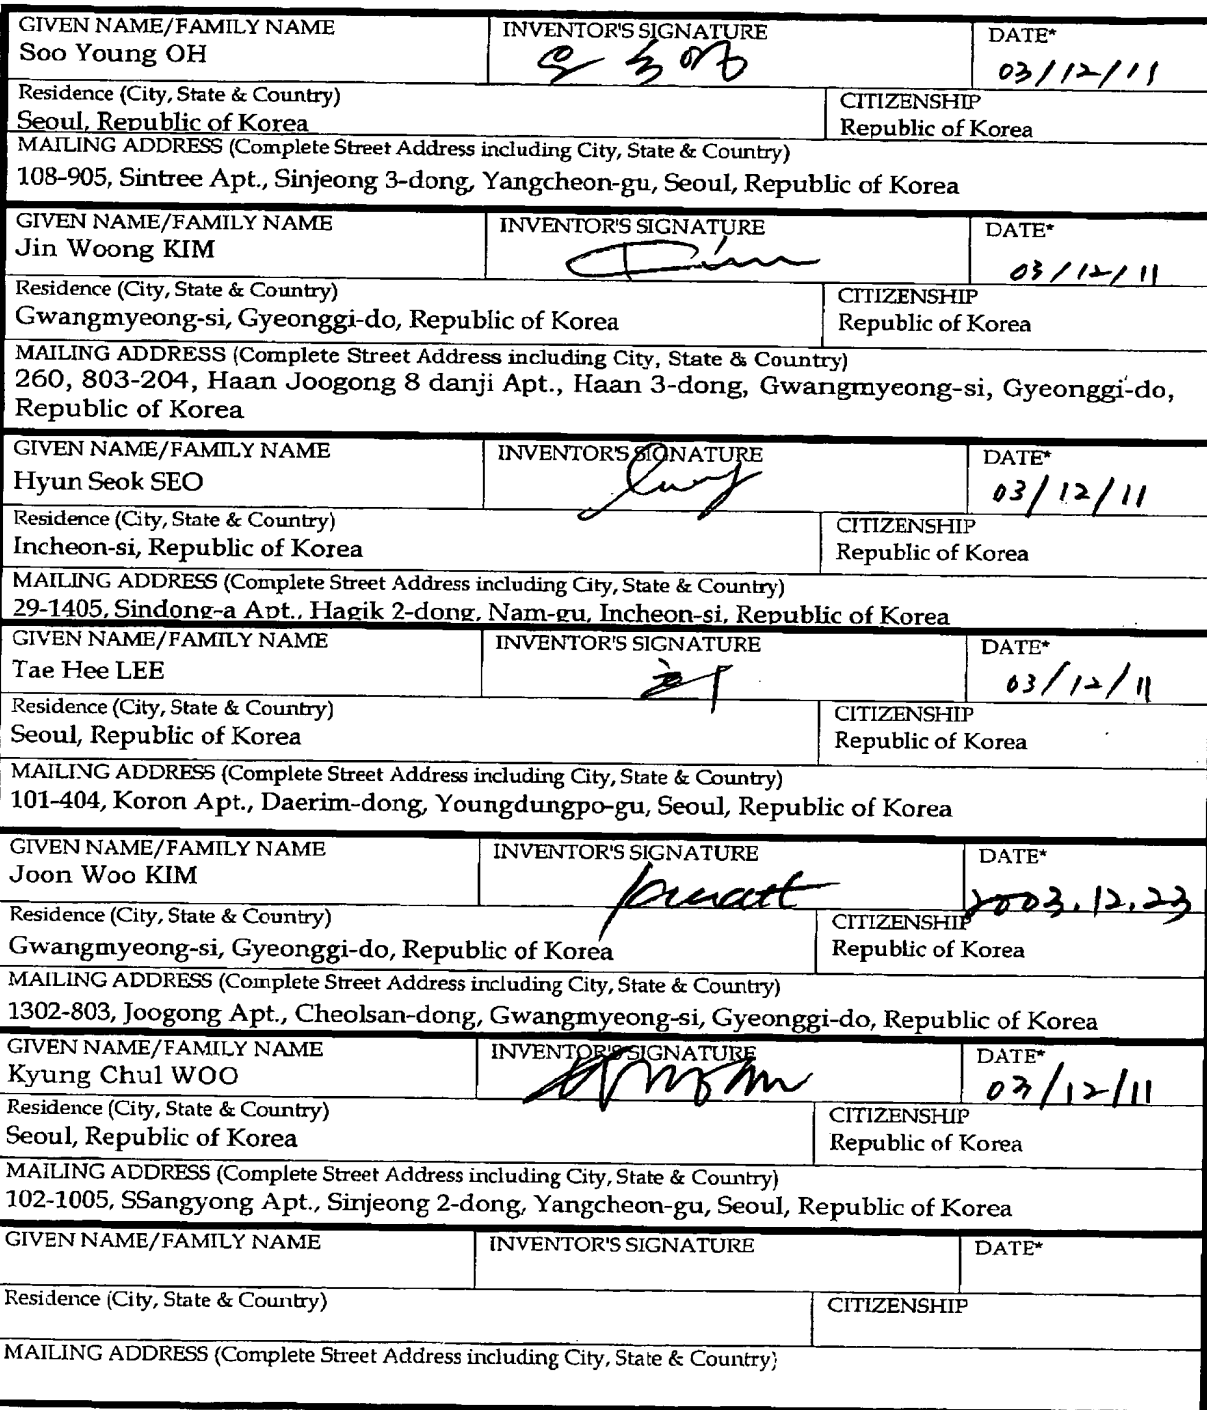 GIVEN NAME/FAMILY NAME INVENTOR'S SIGNATURE DATE*
Soo Young OH 오수영 03/12/11
Residence (City, State & Country) CITIZENSHIP
Seoul, Republic of Korea Republic of Korea
MAILING ADDRESS (Complete Street Address including City, State & Country)
108-905, Sintree Apt., Sinjeong 3-dong, Yangcheon-gu, Seoul, Republic of Korea
GIVEN NAME/FAMILY NAME INVENTOR'S SIGNATURE DATE*
Jin Woong KIM Kim 03/12/11
Residence (City, State & Country) CITIZENSHIP
Gwangmyeong-si, Gyeonggi-do, Republic of Korea Republic of Korea
MAILING ADDRESS (Complete Street Address including City, State & Country)
260, 803-204, Haan Joogong 8 danji Apt., Haan 3-dong, Gwangmyeong-si, Gyeonggi-do,
Republic of Korea
GIVEN NAME/FAMILY NAME INVENTOR'S SIGNATURE DATE*
Hyun Seok SEO 03/12/11
Residence (City, State & Country) CITIZENSHIP
Incheon-si, Republic of Korea Republic of Korea
MAILING ADDRESS (Complete Street Address including City, State & Country)
29-1405, Sindong-a Apt., Hagik 2-dong, Nam-gu, Incheon-si, Republic of Korea
GIVEN NAME/FAMILY NAME INVENTOR'S SIGNATURE DATE*
Tae Hee LEE 03/12/11
Residence (City, State & Country) CITIZENSHIP
Seoul, Republic of Korea Republic of Korea
MAILING ADDRESS (Complete Street Address including City, State & Country)
101-404, Koron Apt., Daerim-dong, Youngdungpo-gu, Seoul, Republic of Korea
GIVEN NAME/FAMILY NAME INVENTOR'S SIGNATURE DATE*
Joon Woo KIM 2003.12.23
Residence (City, State & Country) CITIZENSHIP
Gwangmyeong-si, Gyeonggi-do, Republic of Korea Republic of Korea
MAILING ADDRESS (Complete Street Address including City, State & Country)
1302-803, Joogong Apt., Cheolsan-dong, Gwangmyeong-si, Gyeonggi-do, Republic of Korea
GIVEN NAME/FAMILY NAME INVENTOR'S SIGNATURE DATE*
Kyung Chul WOO 03/12/11
Residence (City, State & Country) CITIZENSHIP
Seoul, Republic of Korea Republic of Korea
MAILING ADDRESS (Complete Street Address including City, State & Country)
102-1005, SSangyong Apt., Sinjeong 2-dong, Yangcheon-gu, Seoul, Republic of Korea
GIVEN NAME/FAMILY NAME INVENTOR'S SIGNATURE DATE*
Residence (City, State & Country) CITIZENSHIP
MAILING ADDRESS (Complete Street Address including City, State & Country)